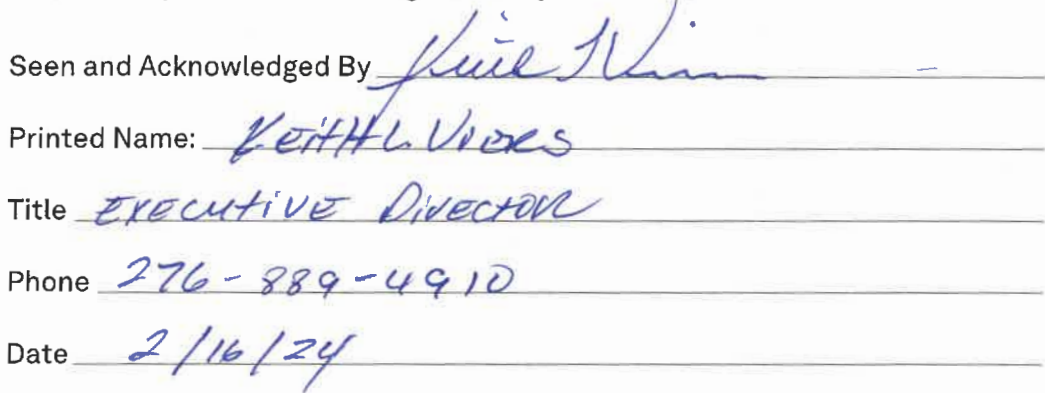 Seen and Acknowledged By
Printed Name: KEITH L. VIERS
Title EXECUTIVE DIRECTOR
Phone 276-889-4910
Date 2/16/24